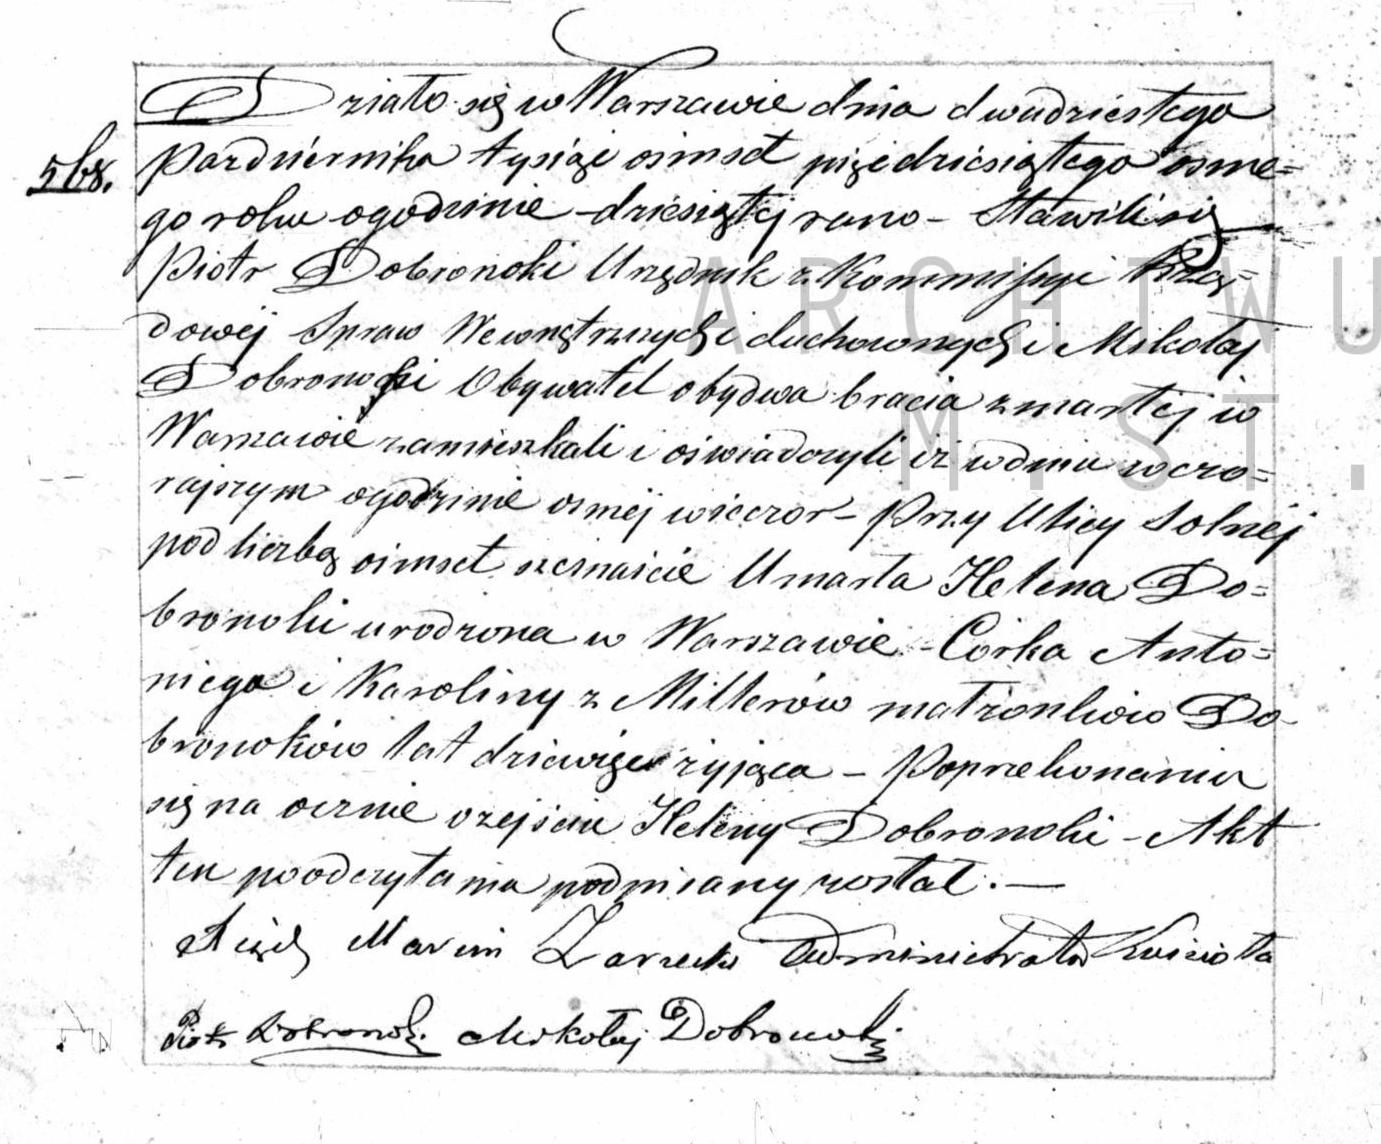 Działo się w Warszawie dnia dwudziestego
568. Pazdziernika tysiąc ośmset pięćdziesiątego osme=
go roku o godzinie dziesiątej rano – Stawili się
Piotr Dobronoki Urzędnik z Kommissyi Rzą=
dowéj Spraw Wewnętrznych i duchownych i Mikołaj
Dobronoki Obywatel obydwa bracia zmarłej w
Warszawie zamieszkali i oświadczyli iż w dniu wczo=
rajszym o godzinie osméj wieczor – Przy Ulicy Solnéj
pod liczbą ośmset szesnaście Umarła Helena Do=
bronoki urodzona w Warszawie – Córka Anto=
niego i Karoliny z Millerów małżonków Do-
bronoków lat dziewięć żyjąca – Po przekonaniu
się na ocznie o zejściu Heleny Dobronoki – Akt
ten po odczytaniu podpisany został. —
Xiądz Marcin Zarzecki Administrator Kościoła
Piotr Dobronoki. Mikołaj Dobronoki
ARCHIWU
M.ST.